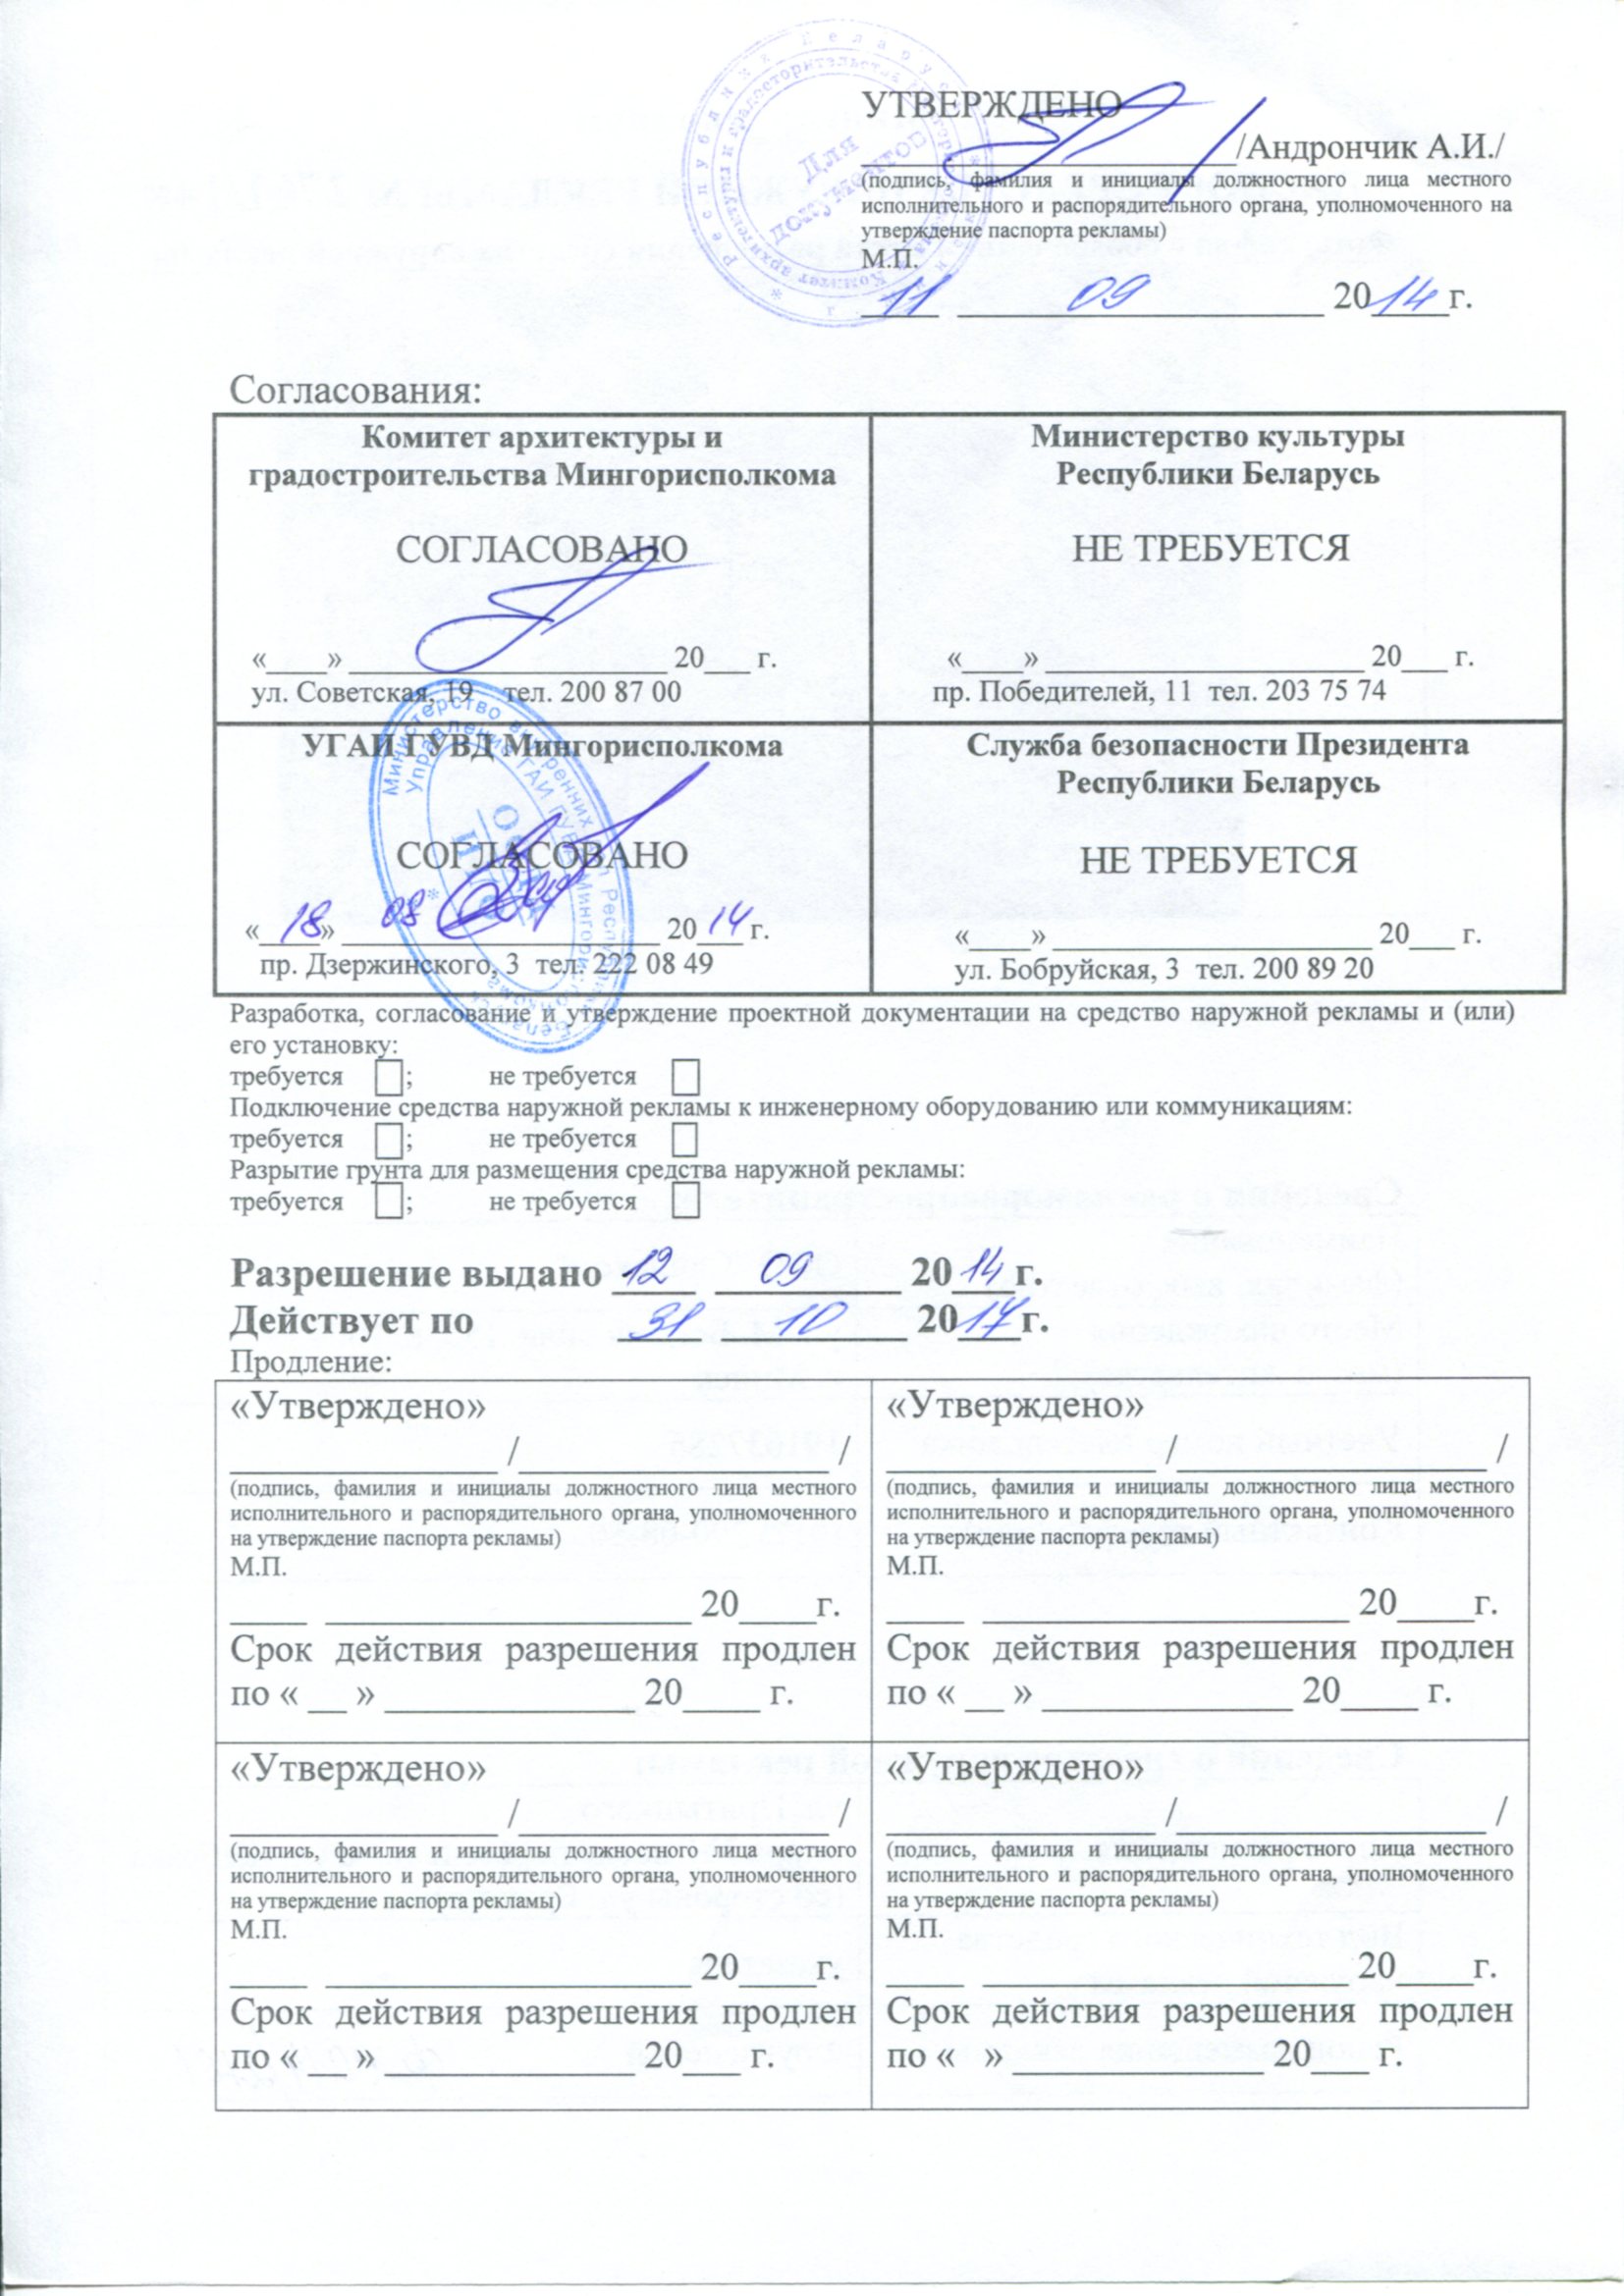 УТВЕРЖДЕНО
/Андрончик А.И./
(подпись, фамилия и инициалы должностного лица местного
исполнительного и распорядительного органа, уполномоченного на
утверждение паспорта рекламы)
М.П.
11 09 2014г.
Для
документов
Согласования:
Комитет архитектуры и
градостроительства Мингорисполкома
СОГЛАСОВАНО
«____» ____________________ 20___ г.
ул. Советская, 19 тел. 200 87 00
Министерство культуры
Республики Беларусь
НЕ ТРЕБУЕТСЯ
«____» ____________________ 20___ г.
пр. Победителей, 11 тел. 203 75 74
УГАИ ГУВД Мингорисполкома
СОГЛАСОВАНО
«18» 08 2014 г.
пр. Дзержинского, 3 тел. 222 08 49
Служба безопасности Президента
Республики Беларусь
НЕ ТРЕБУЕТСЯ
«____» ____________________ 20___ г.
ул. Бобруйская, 3 тел. 200 89 20
Разработка, согласование и утверждение проектной документации на средство наружной рекламы и (или)
его установку:
требуется ; не требуется
Подключение средства наружной рекламы к инженерному оборудованию или коммуникациям:
требуется ; не требуется
Разрытие грунта для размещения средства наружной рекламы:
требуется ; не требуется
Разрешение выдано 12 09 2014г.
Действует по 31 10 2017г.
Продление:
«Утверждено»
______________ /________________ /
(подпись, фамилия и инициалы должностного лица местного
исполнительного и распорядительного органа, уполномоченного
на утверждение паспорта рекламы)
М.П.
____ ___________________ 20____г.
Срок действия разрешения продлен
по « __ » _____________ 20____ г.
«Утверждено»
______________ /________________ /
(подпись, фамилия и инициалы должностного лица местного
исполнительного и распорядительного органа, уполномоченного
на утверждение паспорта рекламы)
М.П.
____ ___________________ 20____г.
Срок действия разрешения продлен
по « __ » _____________ 20____ г.
«Утверждено»
______________ /________________ /
(подпись, фамилия и инициалы должностного лица местного
исполнительного и распорядительного органа, уполномоченного
на утверждение паспорта рекламы)
М.П.
____ ___________________ 20____г.
Срок действия разрешения продлен
по « __ » _____________ 20___ г.
«Утверждено»
______________ /________________ /
(подпись, фамилия и инициалы должностного лица местного
исполнительного и распорядительного органа, уполномоченного
на утверждение паспорта рекламы)
М.П.
____ ___________________ 20____г.
Срок действия разрешения продлен
по « » _____________ 20___ г.